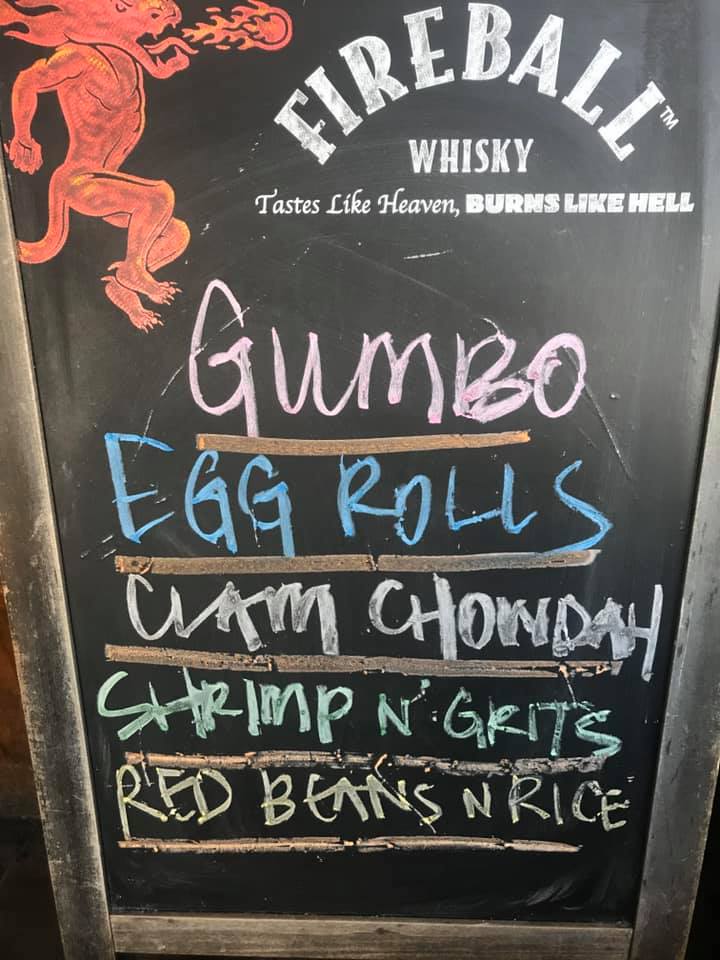 FIREBALL™
WHISKY
Tastes Like Heaven, BURNS LIKE HELL
GUMBO
EGG ROLLS
CLAM CHOWDAH
SHRIMP N' GRITS
RED BEANS N RICE